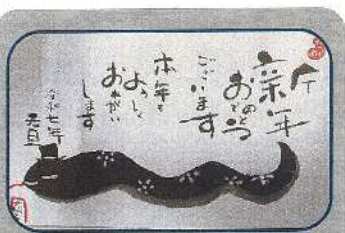 新年
おめでとう
ございます
本年も
よろしく
おねがい
します
令和七年
元旦